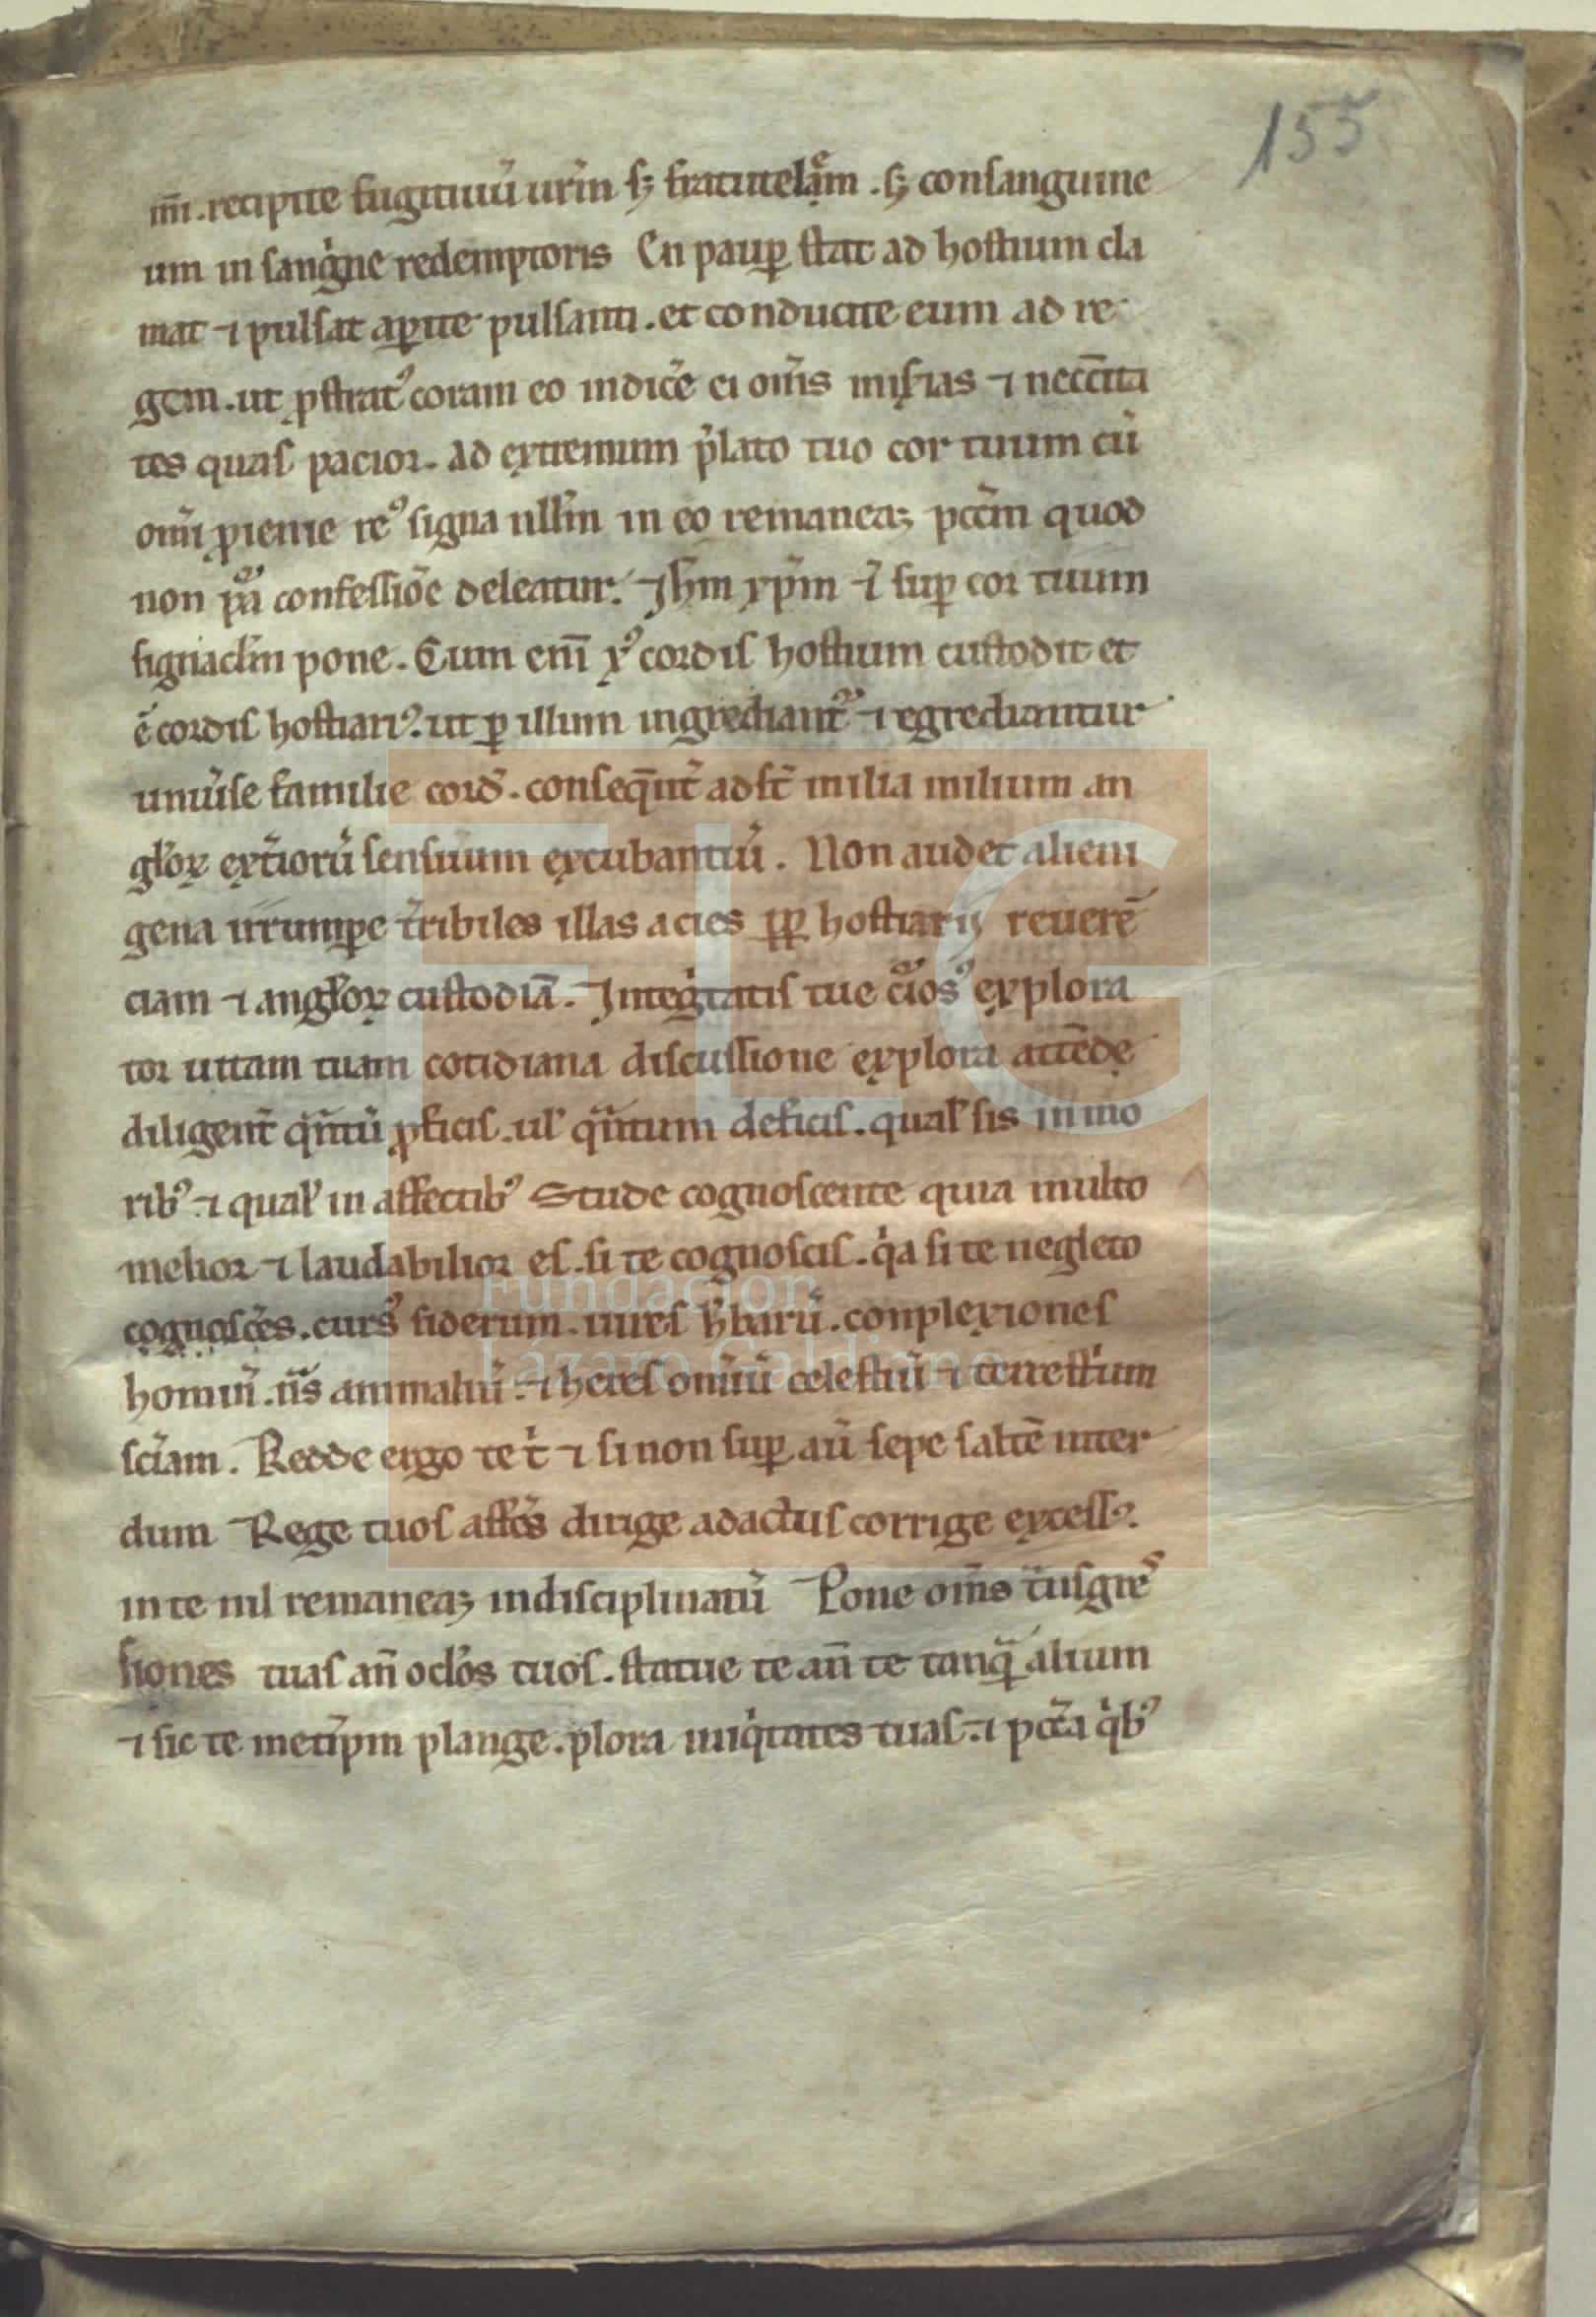 155
mī. recipite fugitiuū ur̄m sꝫ fratruelem. sꝫ consanguine
um in sangⁱne redemptoris En paup̱ stat ad hostium cla
mat ⁊ pulsat ap̱ite pulsanti. et conducite eum ad re
gem. ut ꝓstratꝰ coram eo indicē ei om̄s mis̄ias ⁊ neccīta
tes quas pacior. Ad extremum p̄lato tuo cor tuum cū
om̄i
signa nllm̄ in eo remaneaꝫ pcc̄m quod
non confessiōe deleatur. Jhm̄ xp̄m sup̱ cor tuum
signaclm̄ pone. Cum enī xꝰ cordis hostium custodit et
ē cordis hostiariꝰ. ut p̱ illum ingrediantᷣ ⁊ egrediantur
uniūse familie cord̄. conseq̄nt̄ adst̄ milia milium an
gl̄oꝝ ext̄iorū sensuum excubantiū. Non audet alieni
gena irrump̱e t̄ribiles illas acies pp̱ hostiarij reuerē
ciam ⁊ angl̄oꝝ custodiā. Integⁱtatis tue cᵘⁱosꝰ explora
tor uitam tuam cotidiana discussione explora attēde
diligent̄ qᵃntū ꝓficis. ul̄ qᵃntum deficis. qual̄ sis in mo
ribꝰ ⁊ qual̄ in affectibꝰ Stude cognoscente quia multo
melior ⁊ laudabilior es. si te cognoscis. qⁱa si te negleto
cognosc̄es. cursꝰ siderum. uires h̄barū. conplexiones
hominū. nᵃs animaliū. ⁊ heres om̄iū celestiū ⁊ terrestⁱum
sc̄iam. Redde ergo te tⁱ ⁊ si non sup̱ aū sepe saltē inter
dum Rege tuos affc̄s dirige ad actus corrige excessꝰ.
in te nil remaneaꝫ indisciplinatū Pone om̄s tᵃnsgres
siones tuas an̄ ocl̄os tuos. statue te an̄ te tanqᵃm alium
⁊ sic te metip̄m plange. plora iniqⁱtates tuas. ⁊ pcc̄a qⁱbꝰ
FLG
Fundación
Lázaro Galdiano